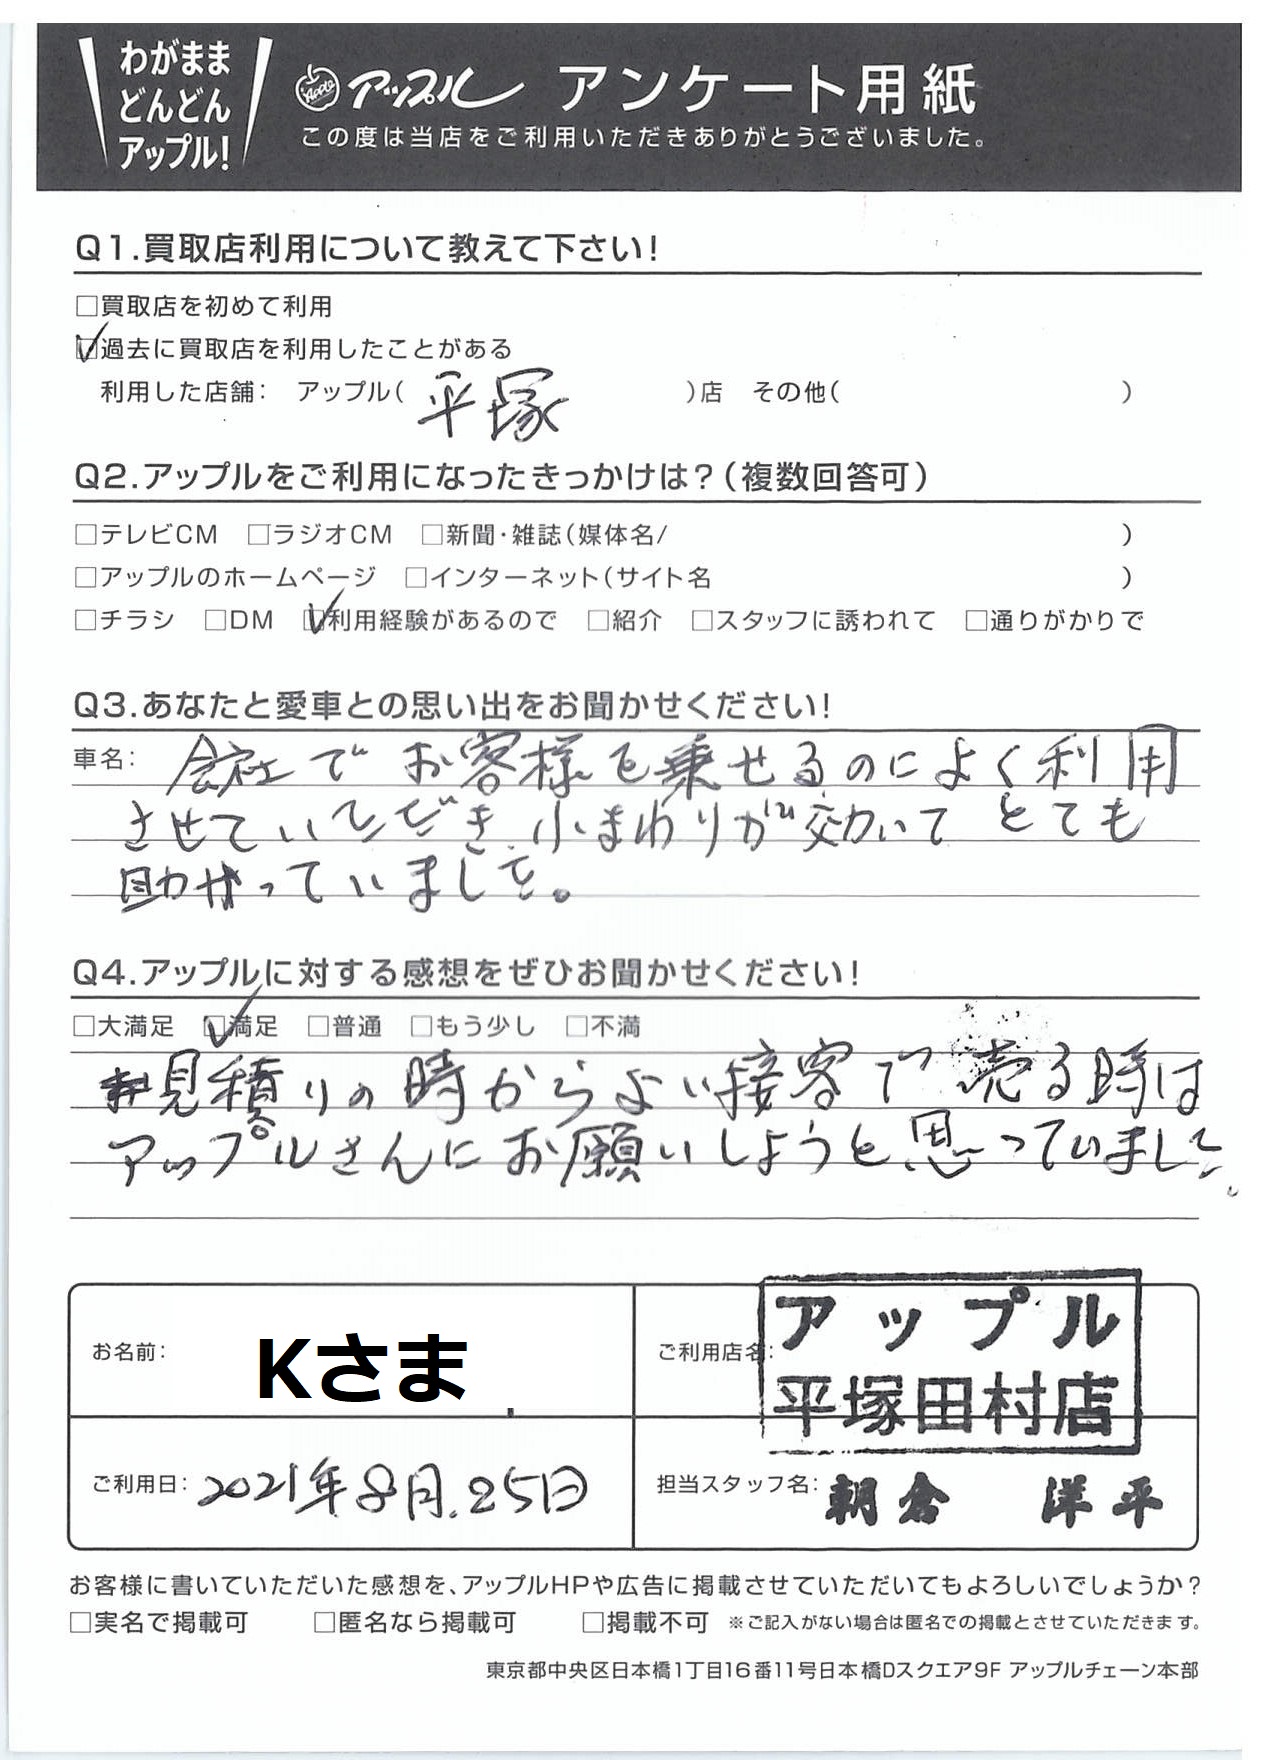 わがまま
どんどん
アップル!
Apple アップル アンケート用紙
この度は当店をご利用いただきありがとうございました。
Q1.買取店利用について教えて下さい!
□買取店を初めて利用
☑過去に買取店を利用したことがある
利用した店舗: アップル(平塚)店 その他( )
Q2.アップルをご利用になったきっかけは?(複数回答可)
□テレビCM □ラジオCM □新聞・雑誌(媒体名/ )
□アップルのホームページ □インターネット(サイト名 )
□チラシ □DM ☑利用経験があるので □紹介 □スタッフに誘われて □通りがかりで
Q3.あなたと愛車との思い出をお聞かせください!
車名: 会社でお客様を乗せるのによく利用
させていただき、小まわりが効いてとても
助かっていました。
Q4.アップルに対する感想をぜひお聞かせください!
□大満足 ☑満足 □普通 □もう少し □不満
見積りの時からよい接客で売る時は
アップルさんにお願いしようと思っていました。
お名前: Kさま
ご利用店名: アップル
平塚田村店
ご利用日: 2021年8月.25日
担当スタッフ名: 朝倉 洋平
お客様に書いていただいた感想を、アップルHPや広告に掲載させていただいてもよろしいでしょうか?
□実名で掲載可 □匿名なら掲載可 □掲載不可 ※ご記入がない場合は匿名での掲載とさせていただきます。
東京都中央区日本橋1丁目16番11号日本橋Dスクエア9F アップルチェーン本部